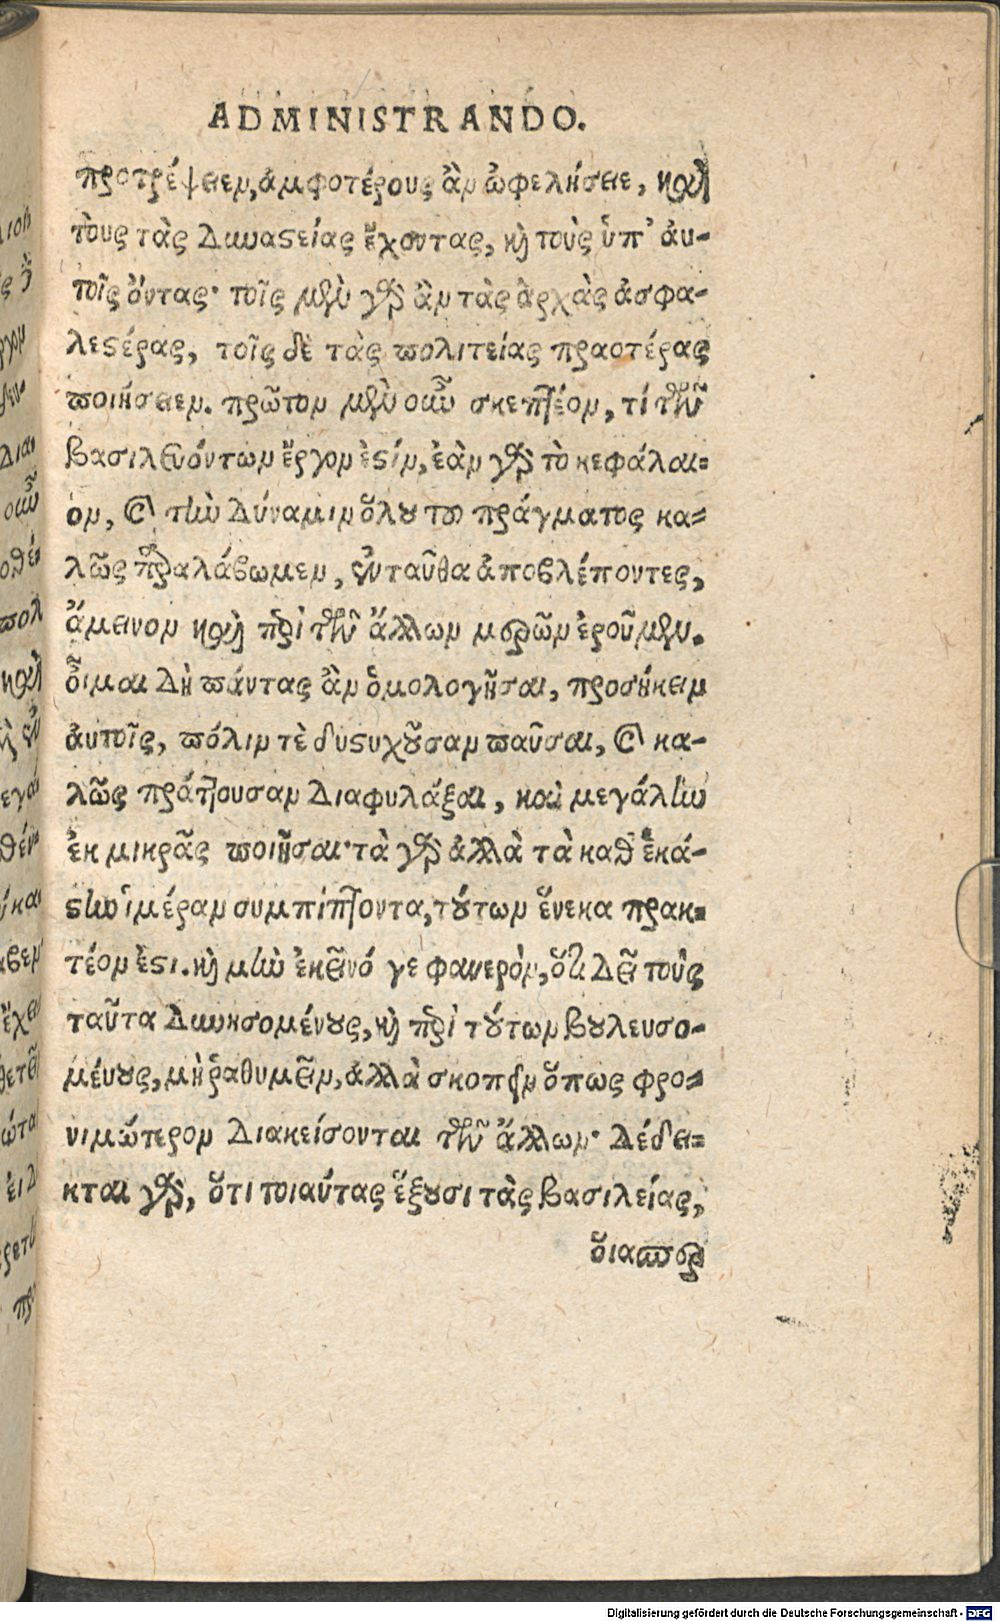 ADMINISTRANDO.
προτρέψειεν, ἀμφοτέρους ἂν ὠφελήσειε, καὶ
τοὺς τὰς δυναστείας ἔχοντας, καὶ τοὺς ὑπ' ἀυ-
τοῖς ὄντας· τοῖς μὲν γὰρ ἂν τὰς ἀρχὰς ἀσφα-
λεστέρας, τοῖς δὲ τὰς πολιτείας πραοτέρας
ποιήσειεν. πρῶτον μὲν οὖν σκεπτέον, τί τῶν
βασιλευόντων ἔργον ἐστίν, ἐὰν γὰρ τὸ κεφάλαι-
ον, καὶ τὴν δύναμιν ὅλου τοῦ πράγματος κα-
λῶς περιλάβωμεν, ἐνταῦθα ἀποβλέποντες,
ἄμεινον καὶ περὶ τῶν ἄλλων μερῶν ἐροῦμεν.
οἶμαι δὴ πάντας ἂν ὁμολογῆσαι, προσήκειν
ἀυτοῖς, πόλιν τὲ δυστυχοῦσαν παῦσαι, καὶ κα-
λῶς πράττουσαν διαφυλάξαι, καὶ μεγάλην
ἐκ μικρᾶς ποιῆσαι· τὰ γὰρ ἀλλὰ τὰ καθ' ἑκά-
στην ἡμέραν συμπίπτοντα, τούτων ἕνεκα πρακ-
τέον ἐστι. καὶ μὴν ἐκεῖνό γε φανερὸν, ὅτι δεῖ τοὺς
ταῦτα δυνησομένους, καὶ περὶ τούτων βουλευσο-
μένους, μὴ ῥαθυμεῖν, ἀλλὰ σκοπεῖν ὅπως φρο-
νιμώτερον διακείσονται τῶν ἄλλων· δέδει-
κται γὰρ, ὅτι τοιαύτας ἕξουσι τὰς βασιλείας,
ὅιασπερ